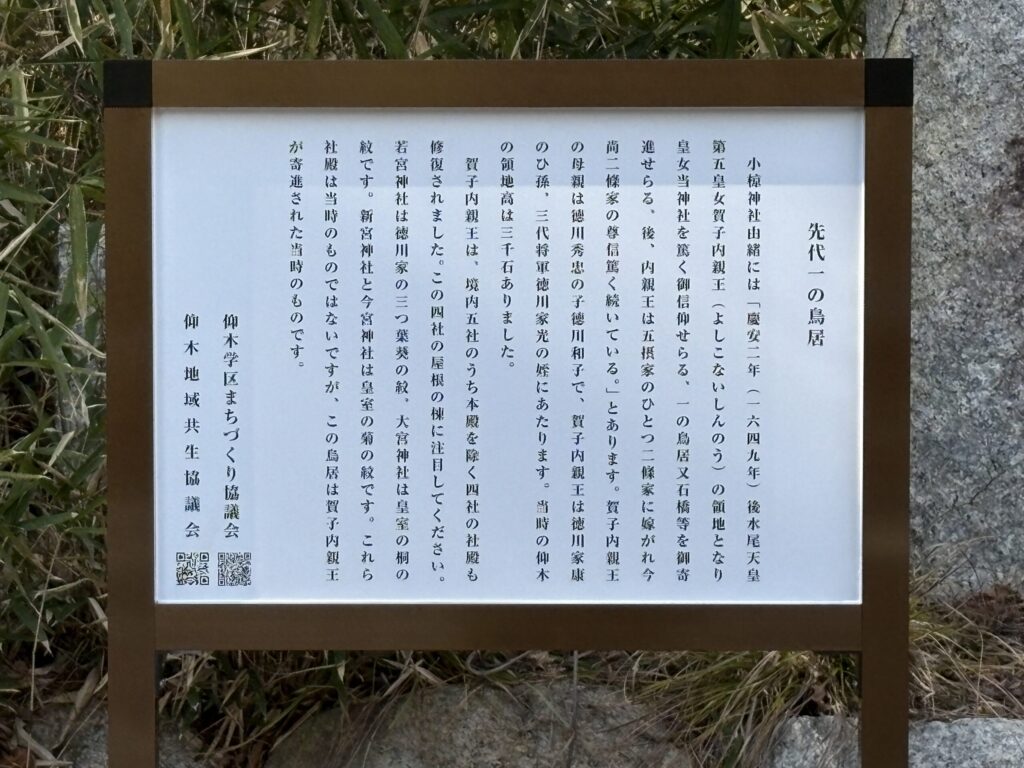 先代一の鳥居
小椋神社由緒には「慶安二年（一六四九年）後水尾天皇
第五皇女賀子内親王（よしこないしんのう）の領地となり
皇女当神社を篤く御信仰せらる、一の鳥居又石橋等を御寄
進せらる、後、内親王は五摂家のひとつ二條家に嫁がれ今
尚二條家の尊信篤く続いている。」とあります。賀子内親王
の母親は徳川秀忠の子徳川和子で、賀子内親王は徳川家康
のひ孫、三代将軍徳川家光の姪にあたります。当時の仰木
の領地高は三千石ありました。
賀子内親王は、境内五社のうち本殿を除く四社の社殿も
修復されました。この四社の屋根の棟に注目してください。
若宮神社は徳川家の三つ葉葵の紋、大宮神社は皇室の桐の
紋です。新宮神社と今宮神社は皇室の菊の紋です。これら
社殿は当時のものではないですが、この鳥居は賀子内親王
が寄進された当時のものです。
仰木学区まちづくり協議会
仰木地域共生協議会